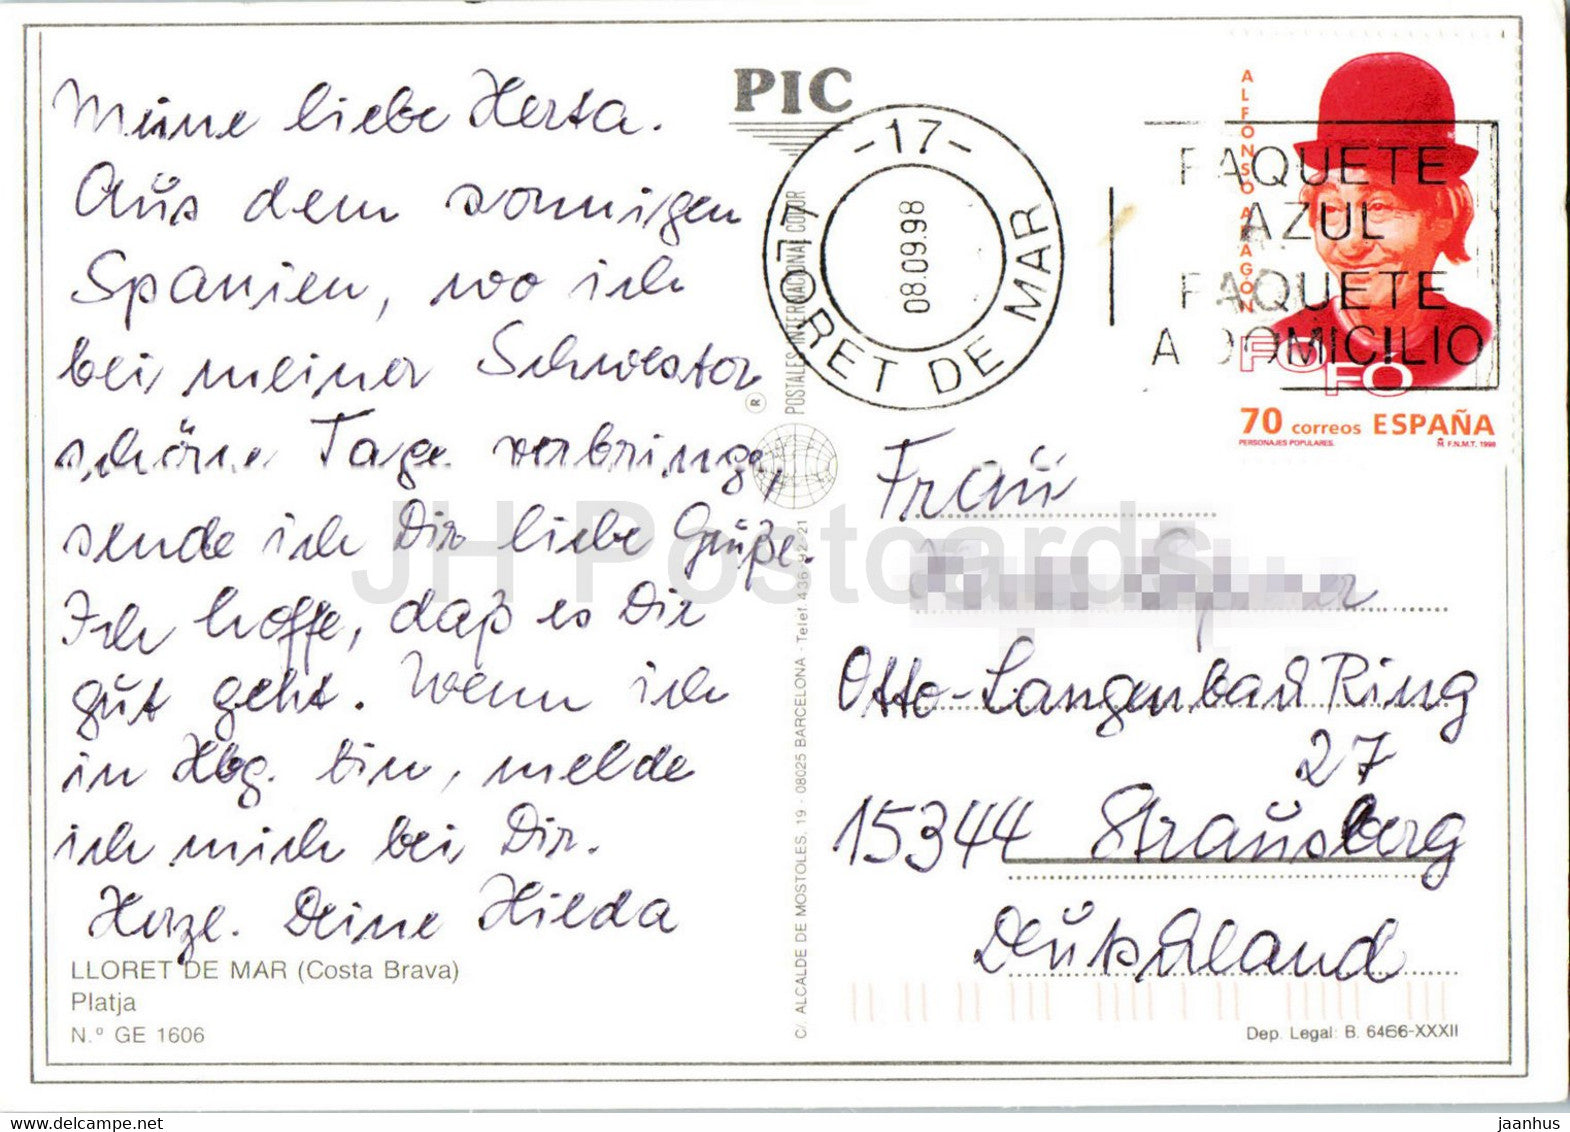 Meine liebe Herta.
Aus dem sonnigen
Spanien, wo ich
bei meiner Schwester
schöne Tage verbringe,
sende ich Dir liebe Grüße.
Ich hoffe, daß es Dir
gut geht. Wenn ich
in Hbg. bin, melde
ich mich bei Dir.
Herzl. Deine Hilda
LLORET DE MAR (Costa Brava)
Platja
N.º GE 1606
PIC
POSTALES INTERNACIONAL COLOR
®
C/. ALCALDE DE MOSTOLES, 19 - 08025 BARCELONA - Telef. 436 92 21
-17-
LLORET DE MAR
08.09.98
PAQUETE
AZUL
PAQUETE
A DOMICILIO
ALFONSO ARAGÓN
FOFÓ
70 correos ESPAÑA
PERSONAJES POPULARES.
F.N.M.T. 1998
Frau
Otto-Langenbach Ring
27
15344 Strausberg
Deutschland
Dep. Legal: B. 6466-XXXII
JH Postcards
www.delcampe.net
jaanhus